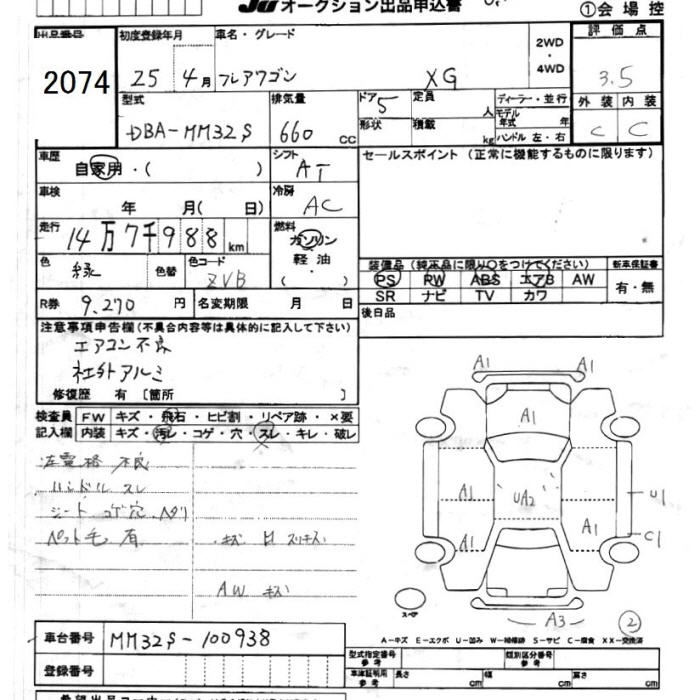 JU オークション出品申込書
①会場控
出品番号 2074
初度登録年月 25 4月
車名・グレード フレアワゴン XG
2WD・4WD
評価点 3.5
型式 DBA-MM32S
排気量 660 cc
ドア 5
定員 人
形状
積載 kg
ディーラー・並行
モデル年式 年
ハンドル 左・右
外装 内装
C C
車歴 自家用・( )
シフト AT
セールスポイント (正常に機能するものに限ります)
車検 年 月( 日)
冷房 AC
走行 14万7千988 km
燃料 ガソリン 軽油・( )
色 緑 色替
色コード ZVB
装備品 (純正品に限り○をつけてください)
新車保証書
PS PW ABS エアB AW
SR ナビ TV カワ
有・無
R券 9,270 円
名変期限 月 日
後日品
注意事項申告欄 (不具合内容等は具体的に記入して下さい)
エアコン不良
社外アルミ
修復歴 有 [箇所 ]
検査員記入欄
FW キズ・飛石・ヒビ割・リペア跡・×要
内装 キズ・汚レ・コゲ・穴・スレ・キレ・破レ
左電格 不良
ハンドル スレ
シート コゲ穴 ヘタリ
ペット毛 有
キズ スリキズ
AW キズ
A1 A1
A1
A1 UA2 U1
A1 A1 C1
スペア
A3
②
A-キズ E-エクボ U-凹み W-補修跡 S-サビ C-腐食 XX-交換済
車台番号 MM32S-100938
型式指定番号 参考
類別区分番号 参考
登録番号
車体証明用 参考 長さ cm 幅 cm 高さ cm